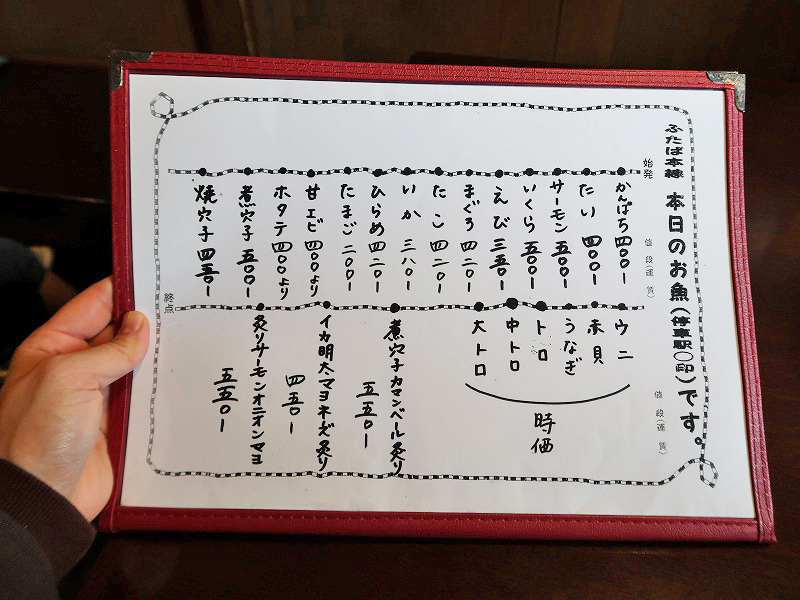 ふたば本線 本日のお魚(停車駅〇印)です。
始発
値段(運賃)
かんぱち 四〇〇ー
たい 四〇〇ー
サーモン 五〇〇ー
いくら 五〇〇ー
えび 三五〇ー
まぐろ 四二〇ー
たこ 四二〇ー
いか 三八〇ー
ひらめ 四二〇ー
たまご 二〇〇ー
甘エビ 四〇〇より
ホタテ 四〇〇より
煮穴子 五〇〇ー
焼穴子 四五〇ー
終点
値段(運賃)
ウニ
赤貝
うなぎ
トロ
中トロ
大トロ
時価
煮穴子カマンベール炙り
五五〇ー
イカ明太マヨネーズ炙り
四五〇ー
炙りサーモンオニオンマヨ
五五〇ー